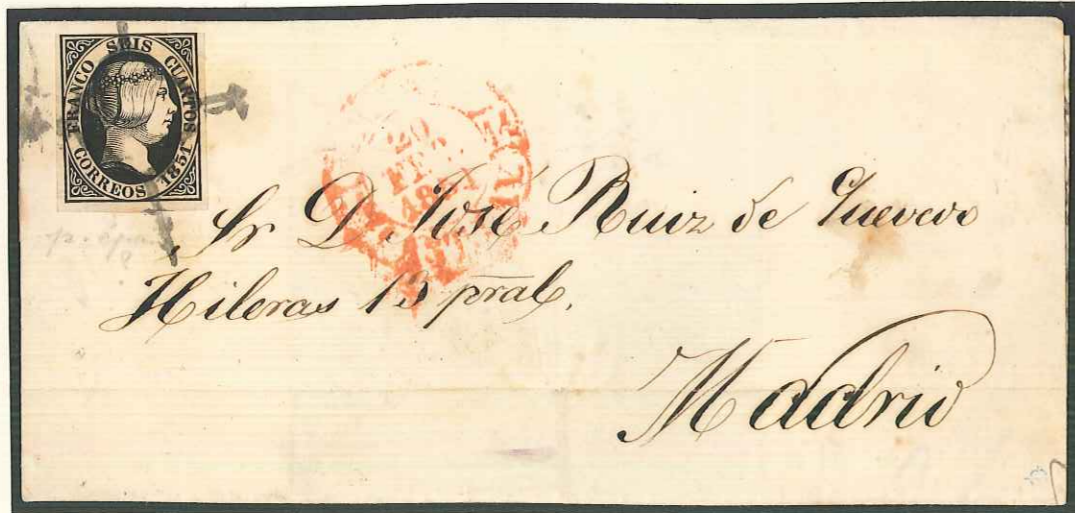 FRANCO SEIS CUARTOS
CORREOS 1851
20
FEB
1851
Sr D José Ruiz de Quevedo
Hileras 13 pral.
Madrid